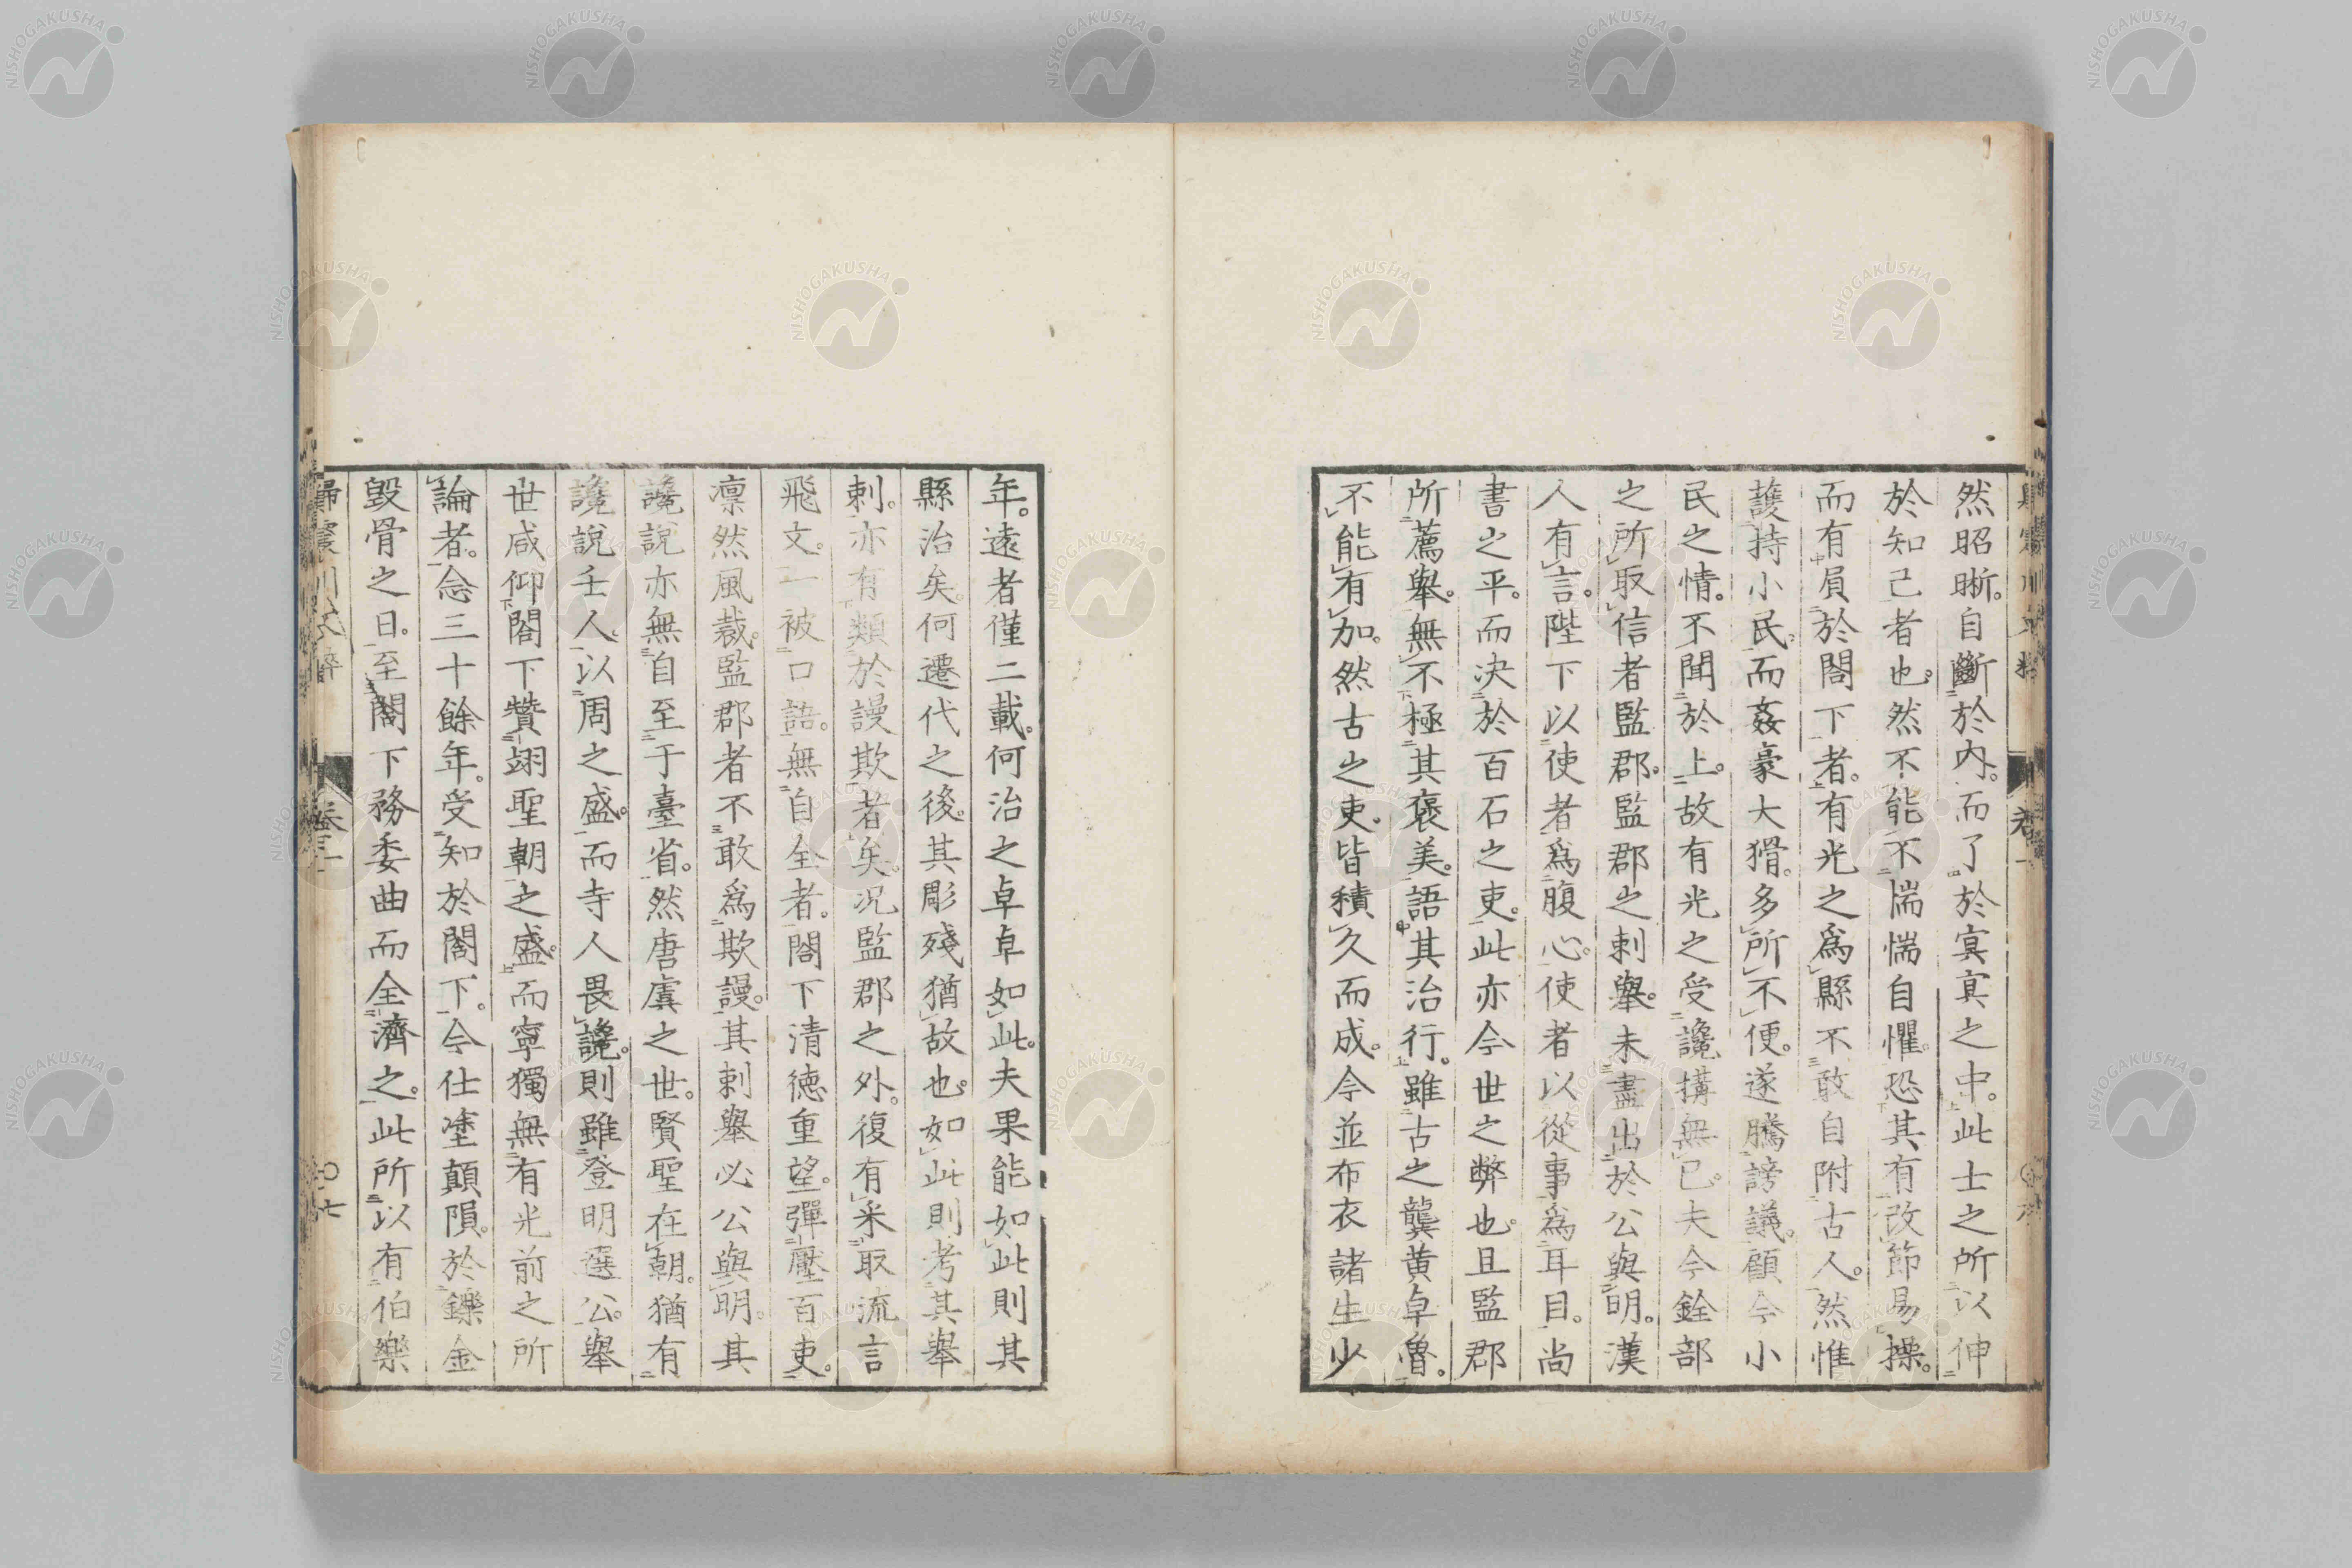 然昭晰。自斷於内。而了於冥冥之中。此士之所以伸
於知己者也。然不能不惴惴自懼。恐其有改節易操。
而有屓於閤下者。有光之爲縣不敢自附古人。然惟
護持小民。而姦豪大猾。多所不便。遂騰謗議。顧今小
民之情。不聞於上。故有光之受讒搆無已。夫今銓部
之所取信者監郡。監郡之刺舉。未盡出於公與明。漢
人有言。陛下以使者爲腹心。使者以從事爲耳目。尚
書之平。而决於百石之吏。此亦今世之弊也。且監郡
所薦舉。無不極其褒美。語其治行。雖古之龔黄卓魯。
不能有加。然古之吏。皆積久而成。今並布衣諸生少
年。遠者僅二載。何治之卓卓如此。夫果能如此則其
縣治矣。何遷代之後。其彫殘猶故也。如此則考其舉
刺。亦有類於謾欺者矣。况監郡之外。復有采取流言
飛文。一被口語。無自全者。閤下清德重望。彈壓百吏。
凛然風裁。監郡者不敢爲欺謾。其刺舉必公與明。其
讒說亦無自至于臺省。然唐虞之世。賢聖在朝。猶有
讒說壬人。以周之盛。而寺人畏讒。則雖登明選公。舉
世咸仰閤下贊翊聖朝之盛。而寧獨無有光前之所
論者。念三十餘年。受知於閤下。今仕塗顛隕。於鑠金
毀骨之日。至閤下務委曲而全濟之。此所以有伯樂
卷一